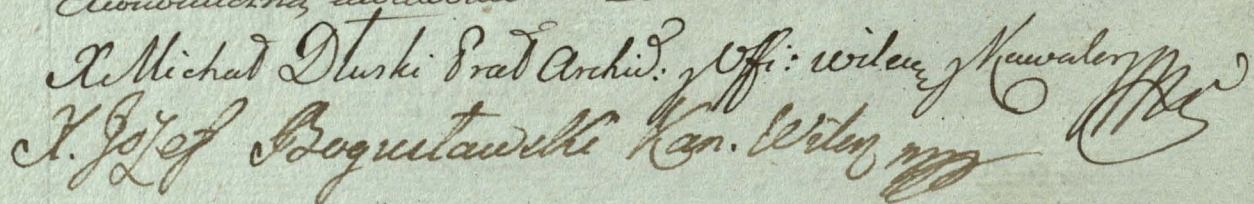 X Michał Dłuski Prał Archid: y Offi: wileń: y Kawaler
X. Józef Bogusławski Kan. Wileń